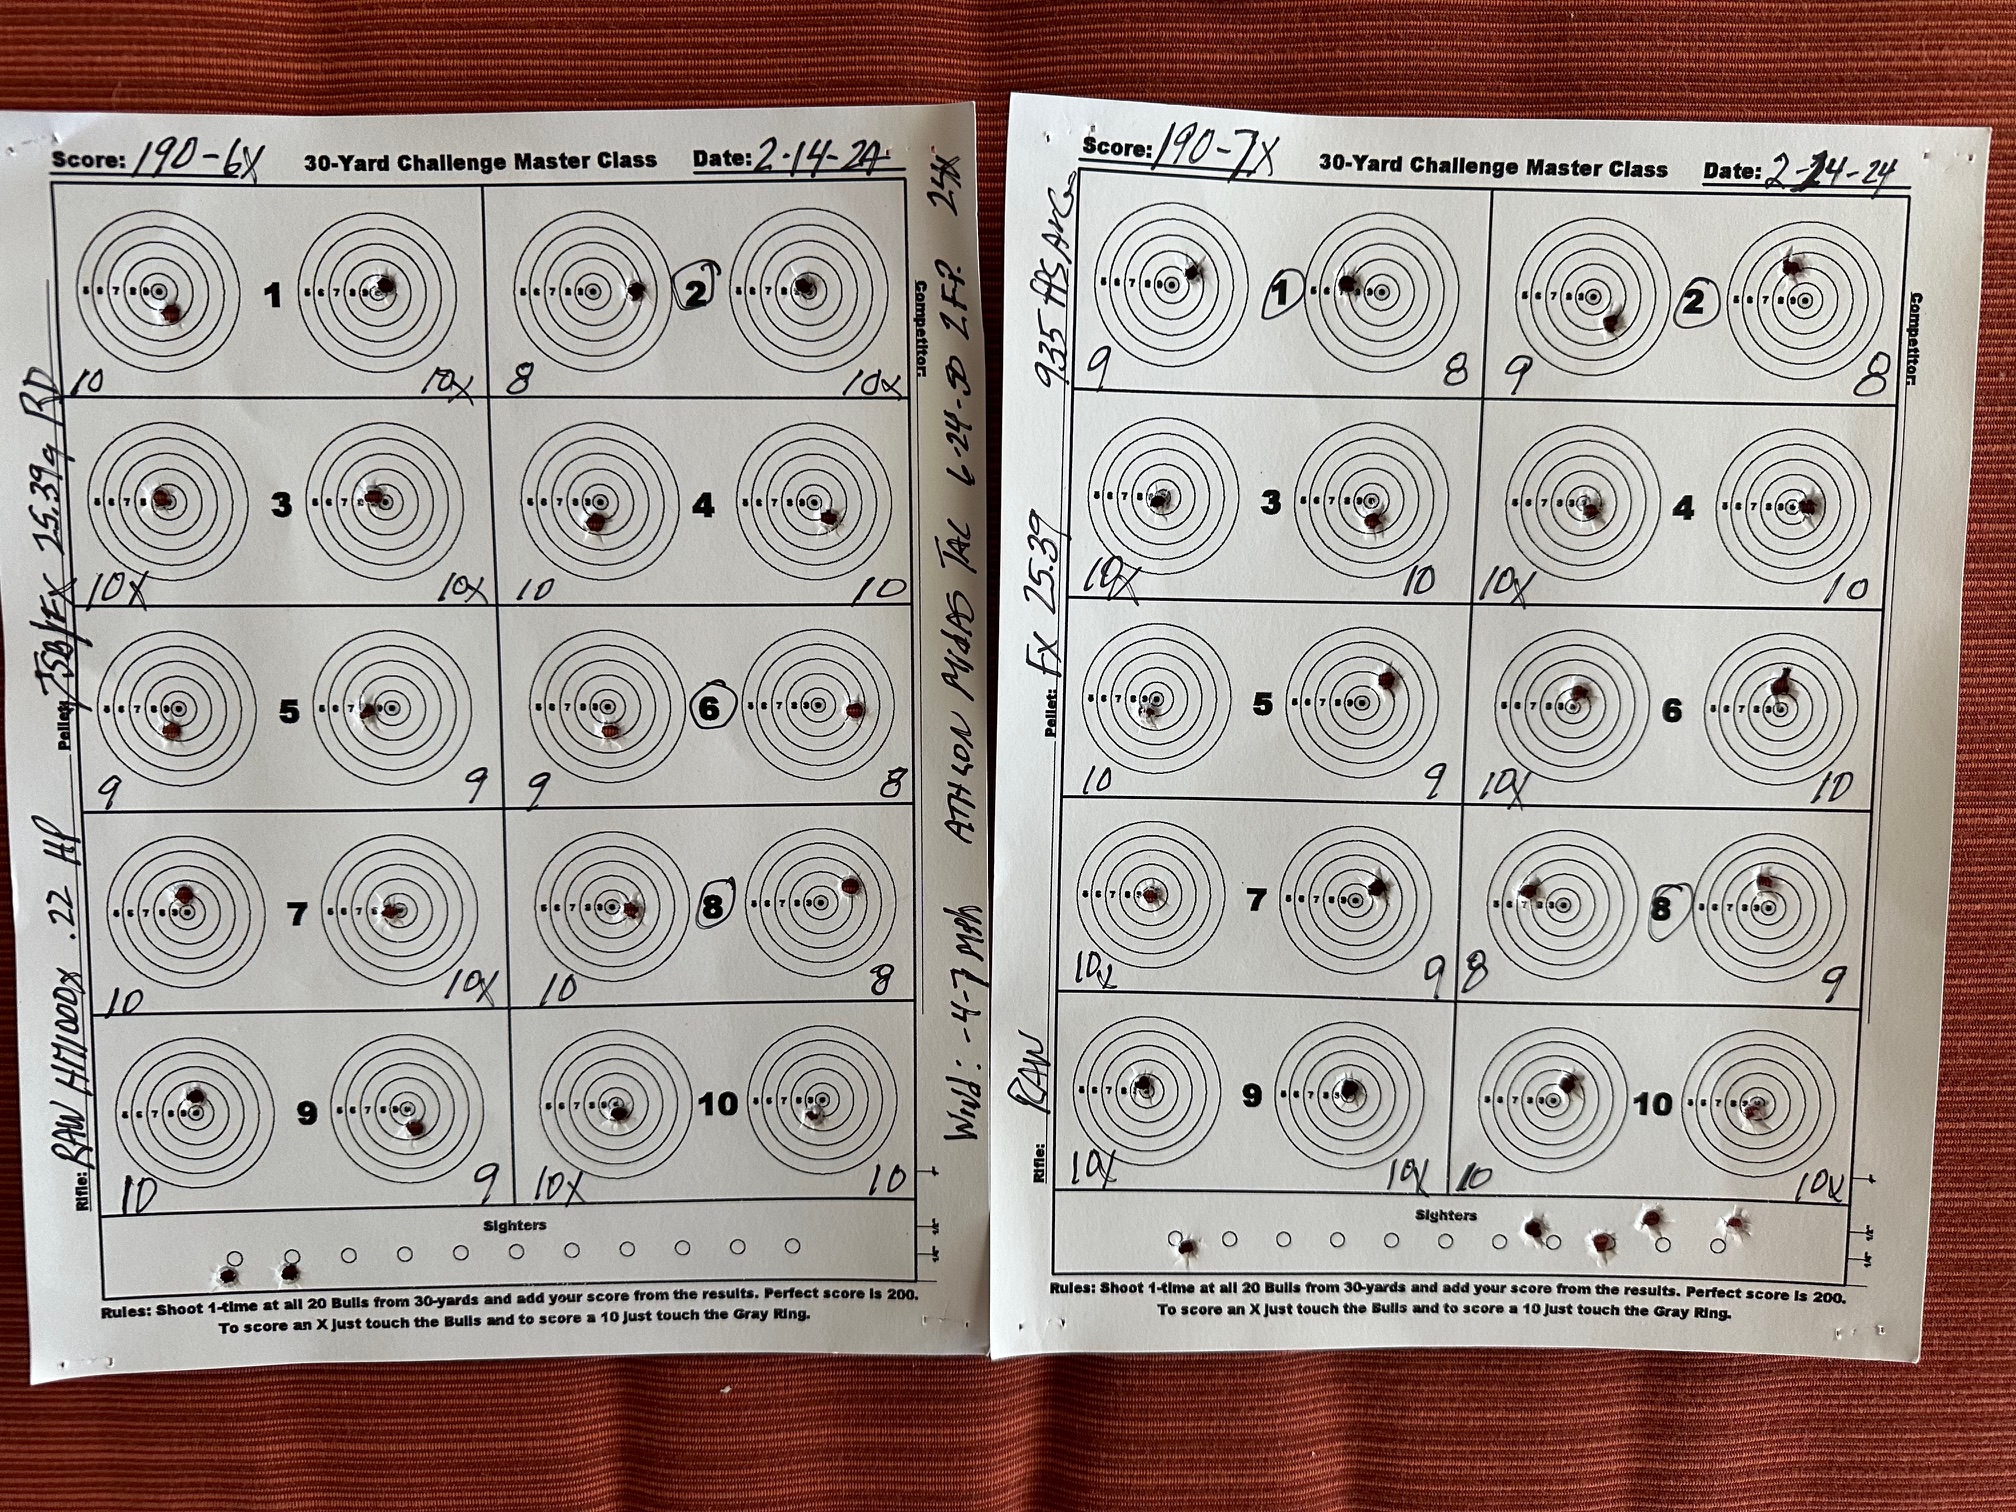 Score: 190-6X 30-Yard Challenge Master Class Date: 2-14-24
1 2
10 10x 8 10x
3 4
10X 10x 10 10
5 6
9 9 9 8
7 8
10 10X 10 8
9 10
10 9 10X 10
Sighters
1/2"
1/4"
Rules: Shoot 1-time at all 20 Bulls from 30-yards and add your score from the results. Perfect score is 200.
To score an X just touch the Bulls and to score a 10 just touch the Gray Ring.
Rifle: RAW HM1000x .22 HP Pellet: JSB/FX 25.39g RD
Competitor:
Wind: -4-7 Mph ATHLON MIDAS TAC 6-24-50 2FP 24X
Score: 190-7X 30-Yard Challenge Master Class Date: 2-14-24
1 2
9 8 9 8
3 4
10X 10 10X 10
5 6
10 9 10X 10
7 8
10x 9 8 9
9 10
10X 10X 10 10x
Sighters
1/2"
1/4"
Rules: Shoot 1-time at all 20 Bulls from 30-yards and add your score from the results. Perfect score is 200.
To score an X just touch the Bulls and to score a 10 just touch the Gray Ring.
Rifle: RAW Pellet: FX 25.39 935 FPS AVG
Competitor: